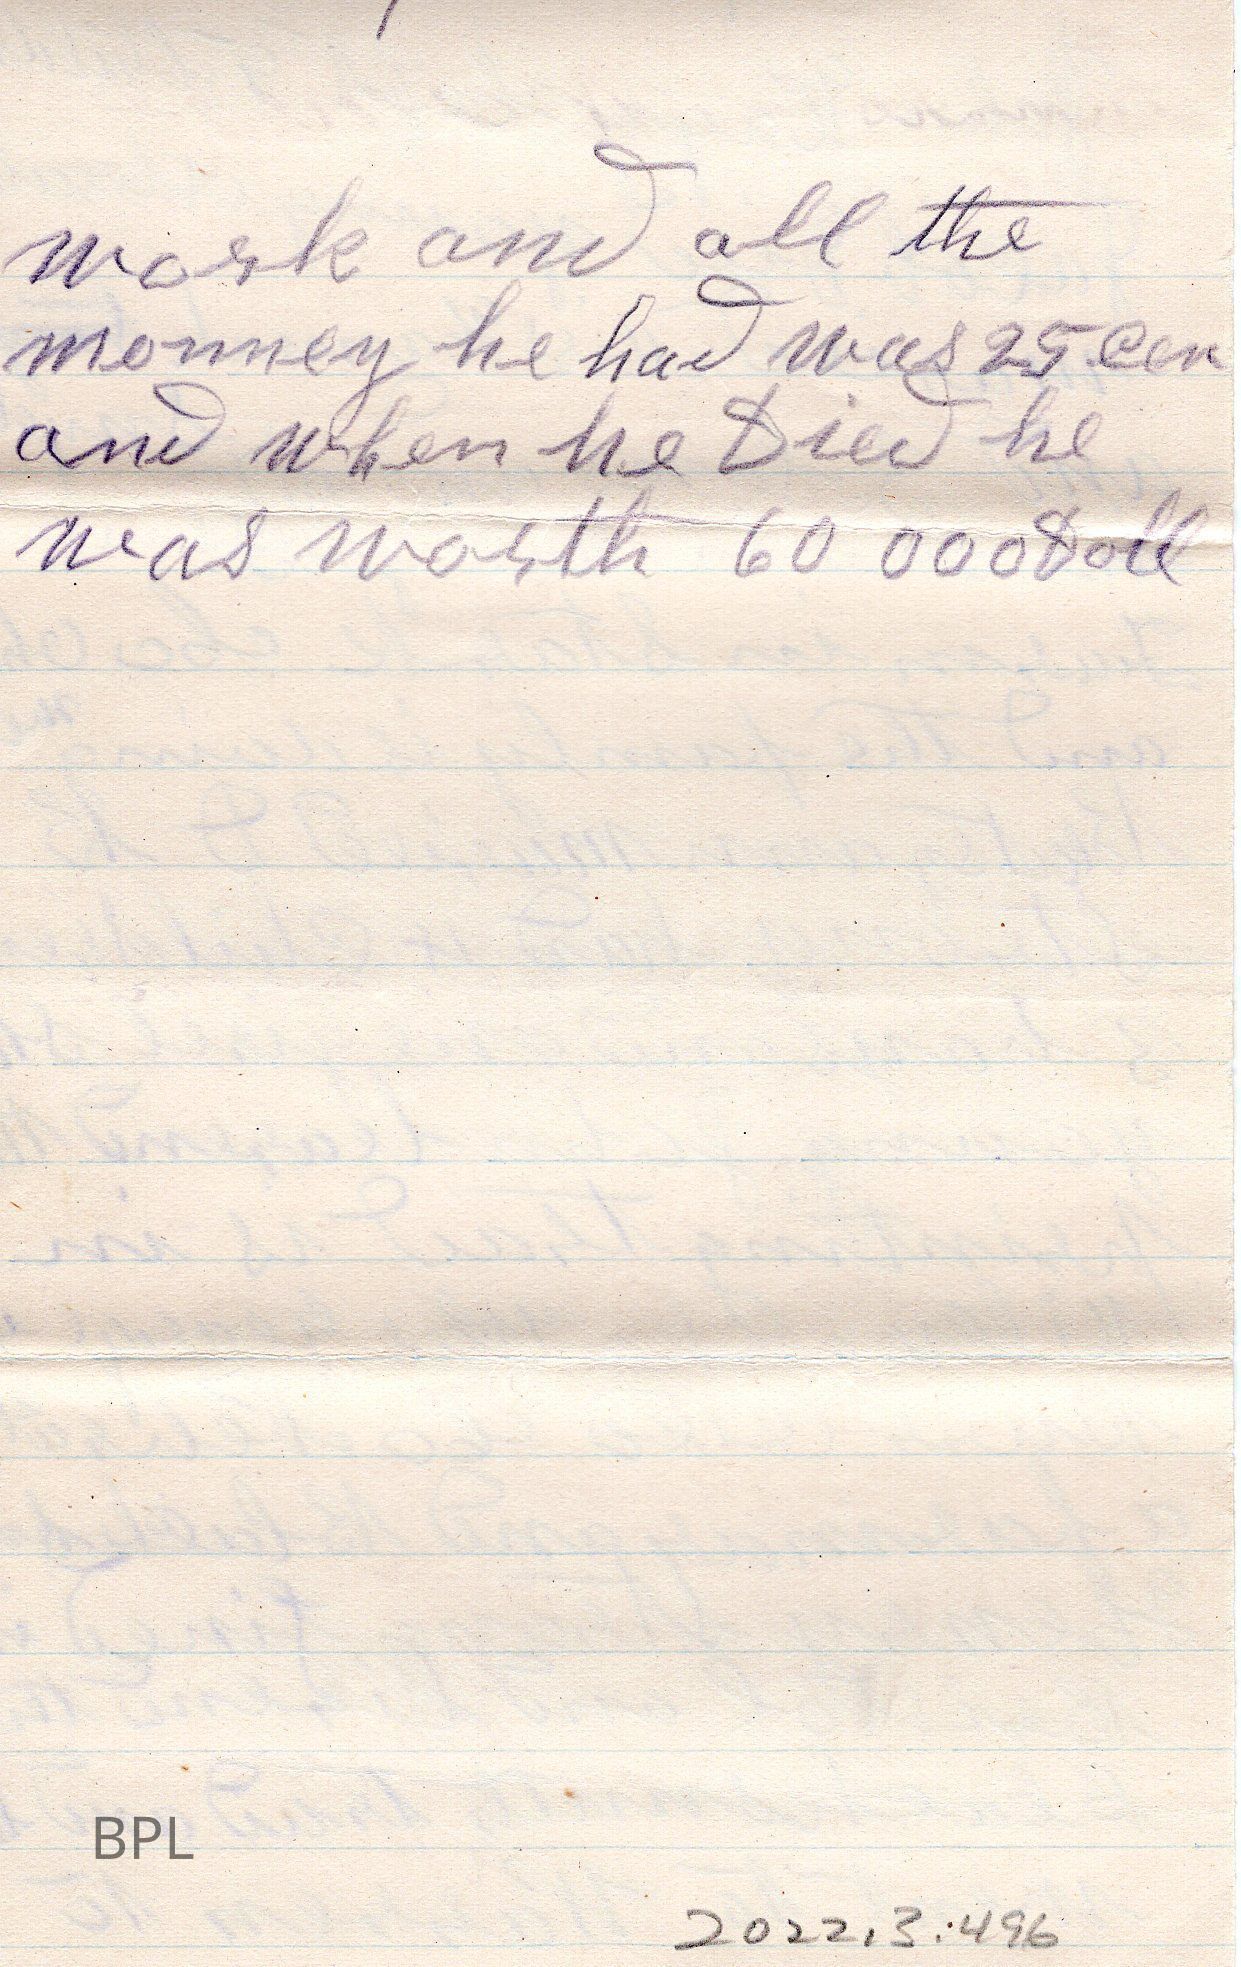 work and all the
monney he had was 25 cen
and when he Died he
was worth 60 000 Doll
BPL
2022.3.496